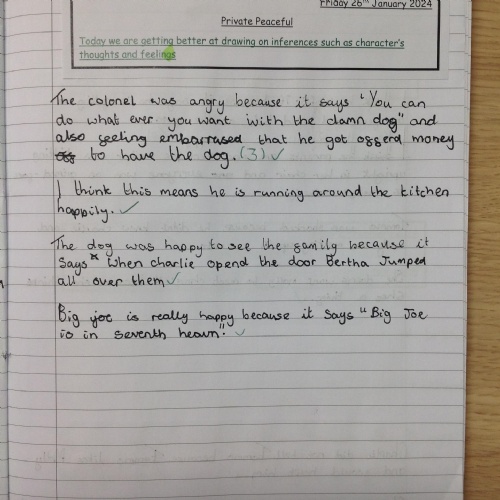 Friday 26th January 2024
Private Peaceful
Today we are getting better at drawing on inferences such as character's
thoughts and feelings
The colonel was angry because it says "You can
do what ever you want with the damn dog" and
also feeling embarrused that he got offerd money
to have the dog. (3) ✓
I think this means he is running around the kitchen
happily. ✓
The dog was happy to see the family because it
says " when charlie opend the door Bertha Jumped
all over them ✓
Big joe is really happy because it says "Big Joe
is in seventh heavn". ✓